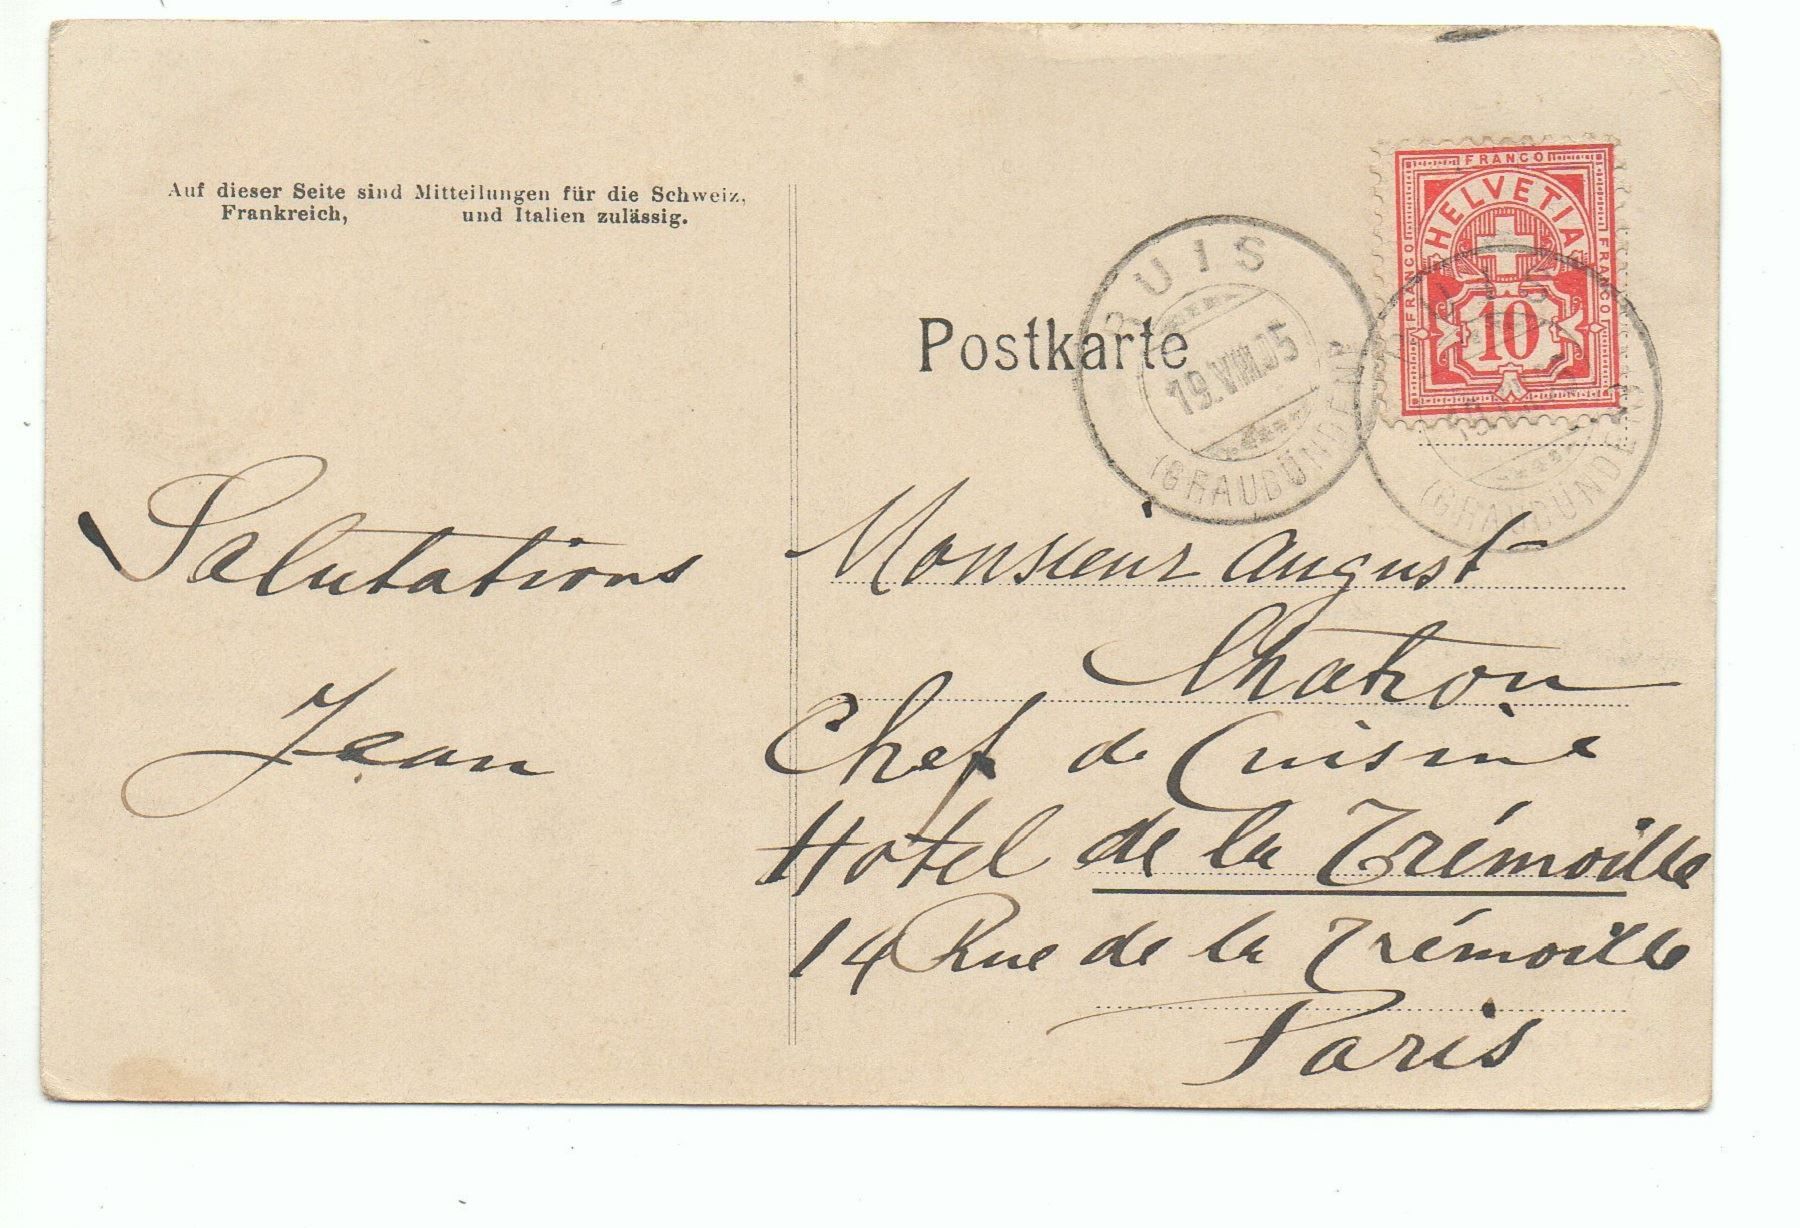 Auf dieser Seite sind Mitteilungen für die Schweiz,
Frankreich, und Italien zulässig.
Postkarte
FRANCO
FRANCO
FRANCO
HELVETIA
10
RUIS
19.VIII.05
(GRAUBÜNDEN)
RUIS
(GRAUBÜNDEN)
Salutations
Jean
Monsieur August
Chatron
Chef de Cuisine
Hotel de la Trémoille
14 Rue de la Trémoille
Paris